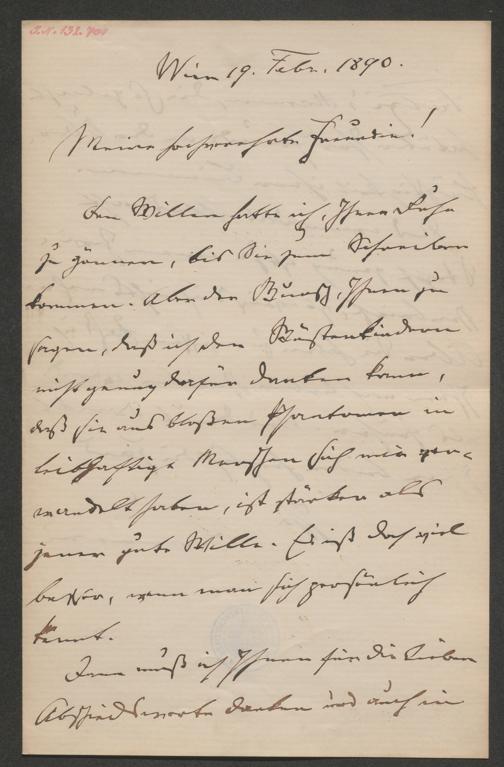 I.N. 132.701
Wien 19. Febr. 1890.
Meine hochverehrte Freundin!
Den Willen hatte ich, Ihnen Ruhe
zu gönnen, bis Sie zum Schreiben
kommen. Aber der Wunsch, Ihnen zu
sagen, daß ich den Wüstenkindern
nicht genug dafür danken kann,
daß sie aus bloßen Phantomen in
leibhaftige Menschen sich mir ver-
wandelt haben, ist stärker als
jener gute Wille. Es ist doch viel
besser, wenn man sich persönlich
kennt.
Dann muß ich Ihnen für die lieben
Abschiedsworte danken und auch in